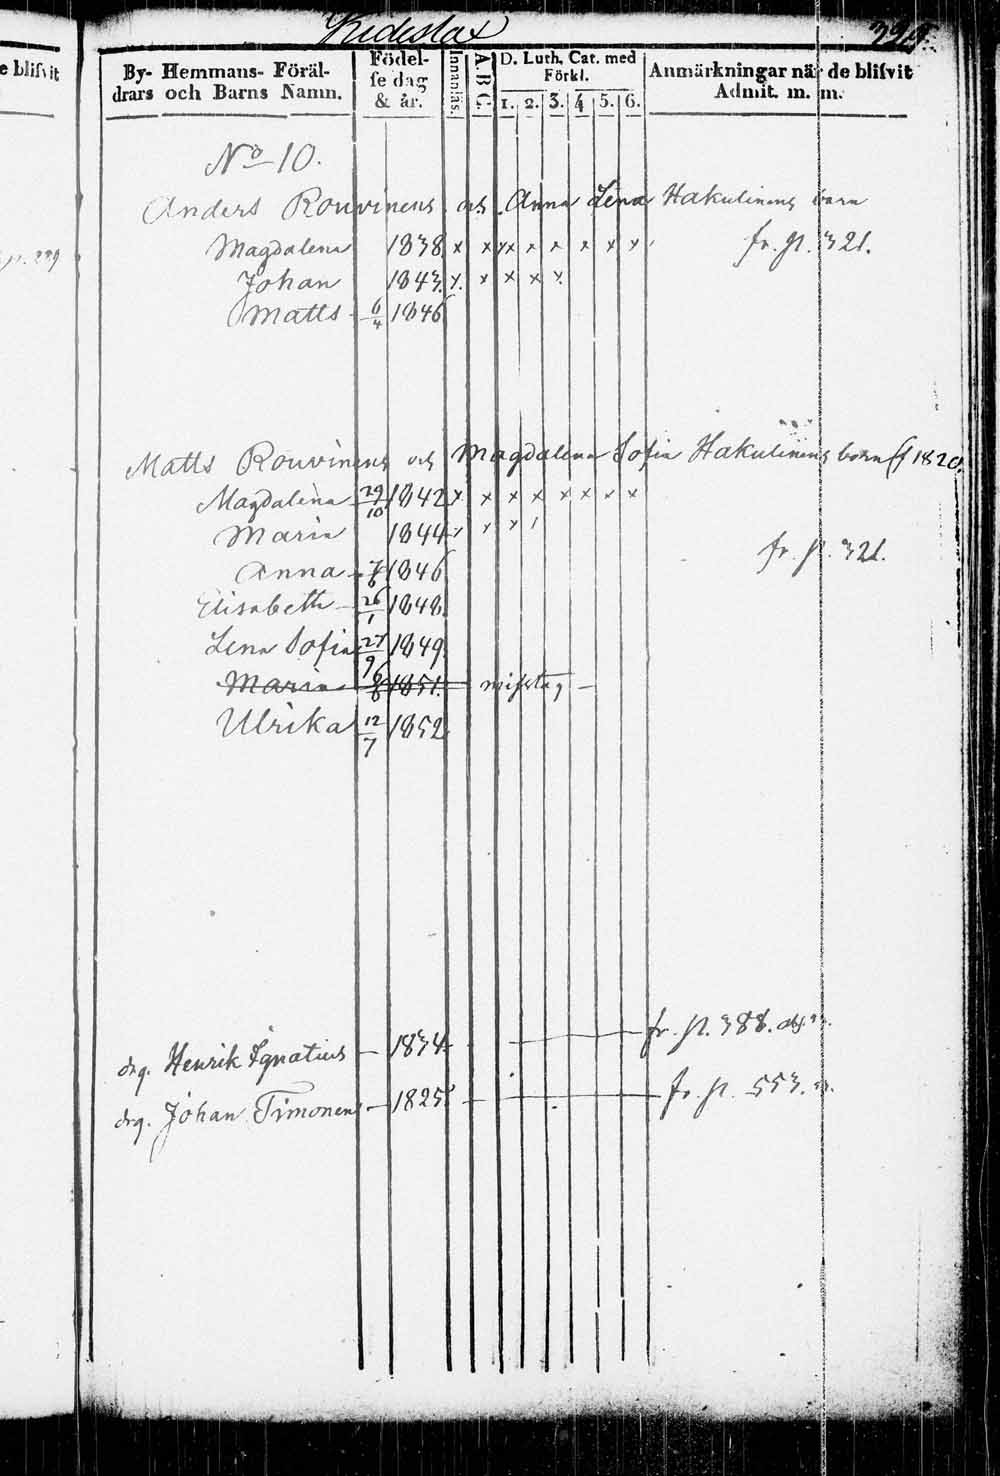 Kidestax 295.
e blifvit
By- Hemmans- Föräl-
drars och Barns Namn.
Födel-
se dag
& år.
Innanläs.
A.B.C.
D. Luth. Cat. med
Förkl.
1. 2. 3. 4 5. 6.
Anmärkningar när de blifvit
Admit. m. m.
No 10.
Anders Rouvinens och Anna Lena Hakulinens barn
Magdalena 1838. x x x x x x x x x fr. p. 321.
Johan 1843. x x x x x
Matts 6/4 1846
Matts Rouvinens och Magdalena Sofia Hakulinens barn f 1820.
Magdalena 29/10 1842 x x x x x x x x
Maria 1844 x x x
fr. p. 321.
Anna 7/6 1846
Elisabeth 26/1 1848.
Lena Sofia 27/9 1849.
Maria 6/8 1851. misstag
Ulrika 12/7 1852
drg. Henrik Ignatius - 1834. fr. p. 388.
drg. Johan Timonen - 1825 fr. p. 553.